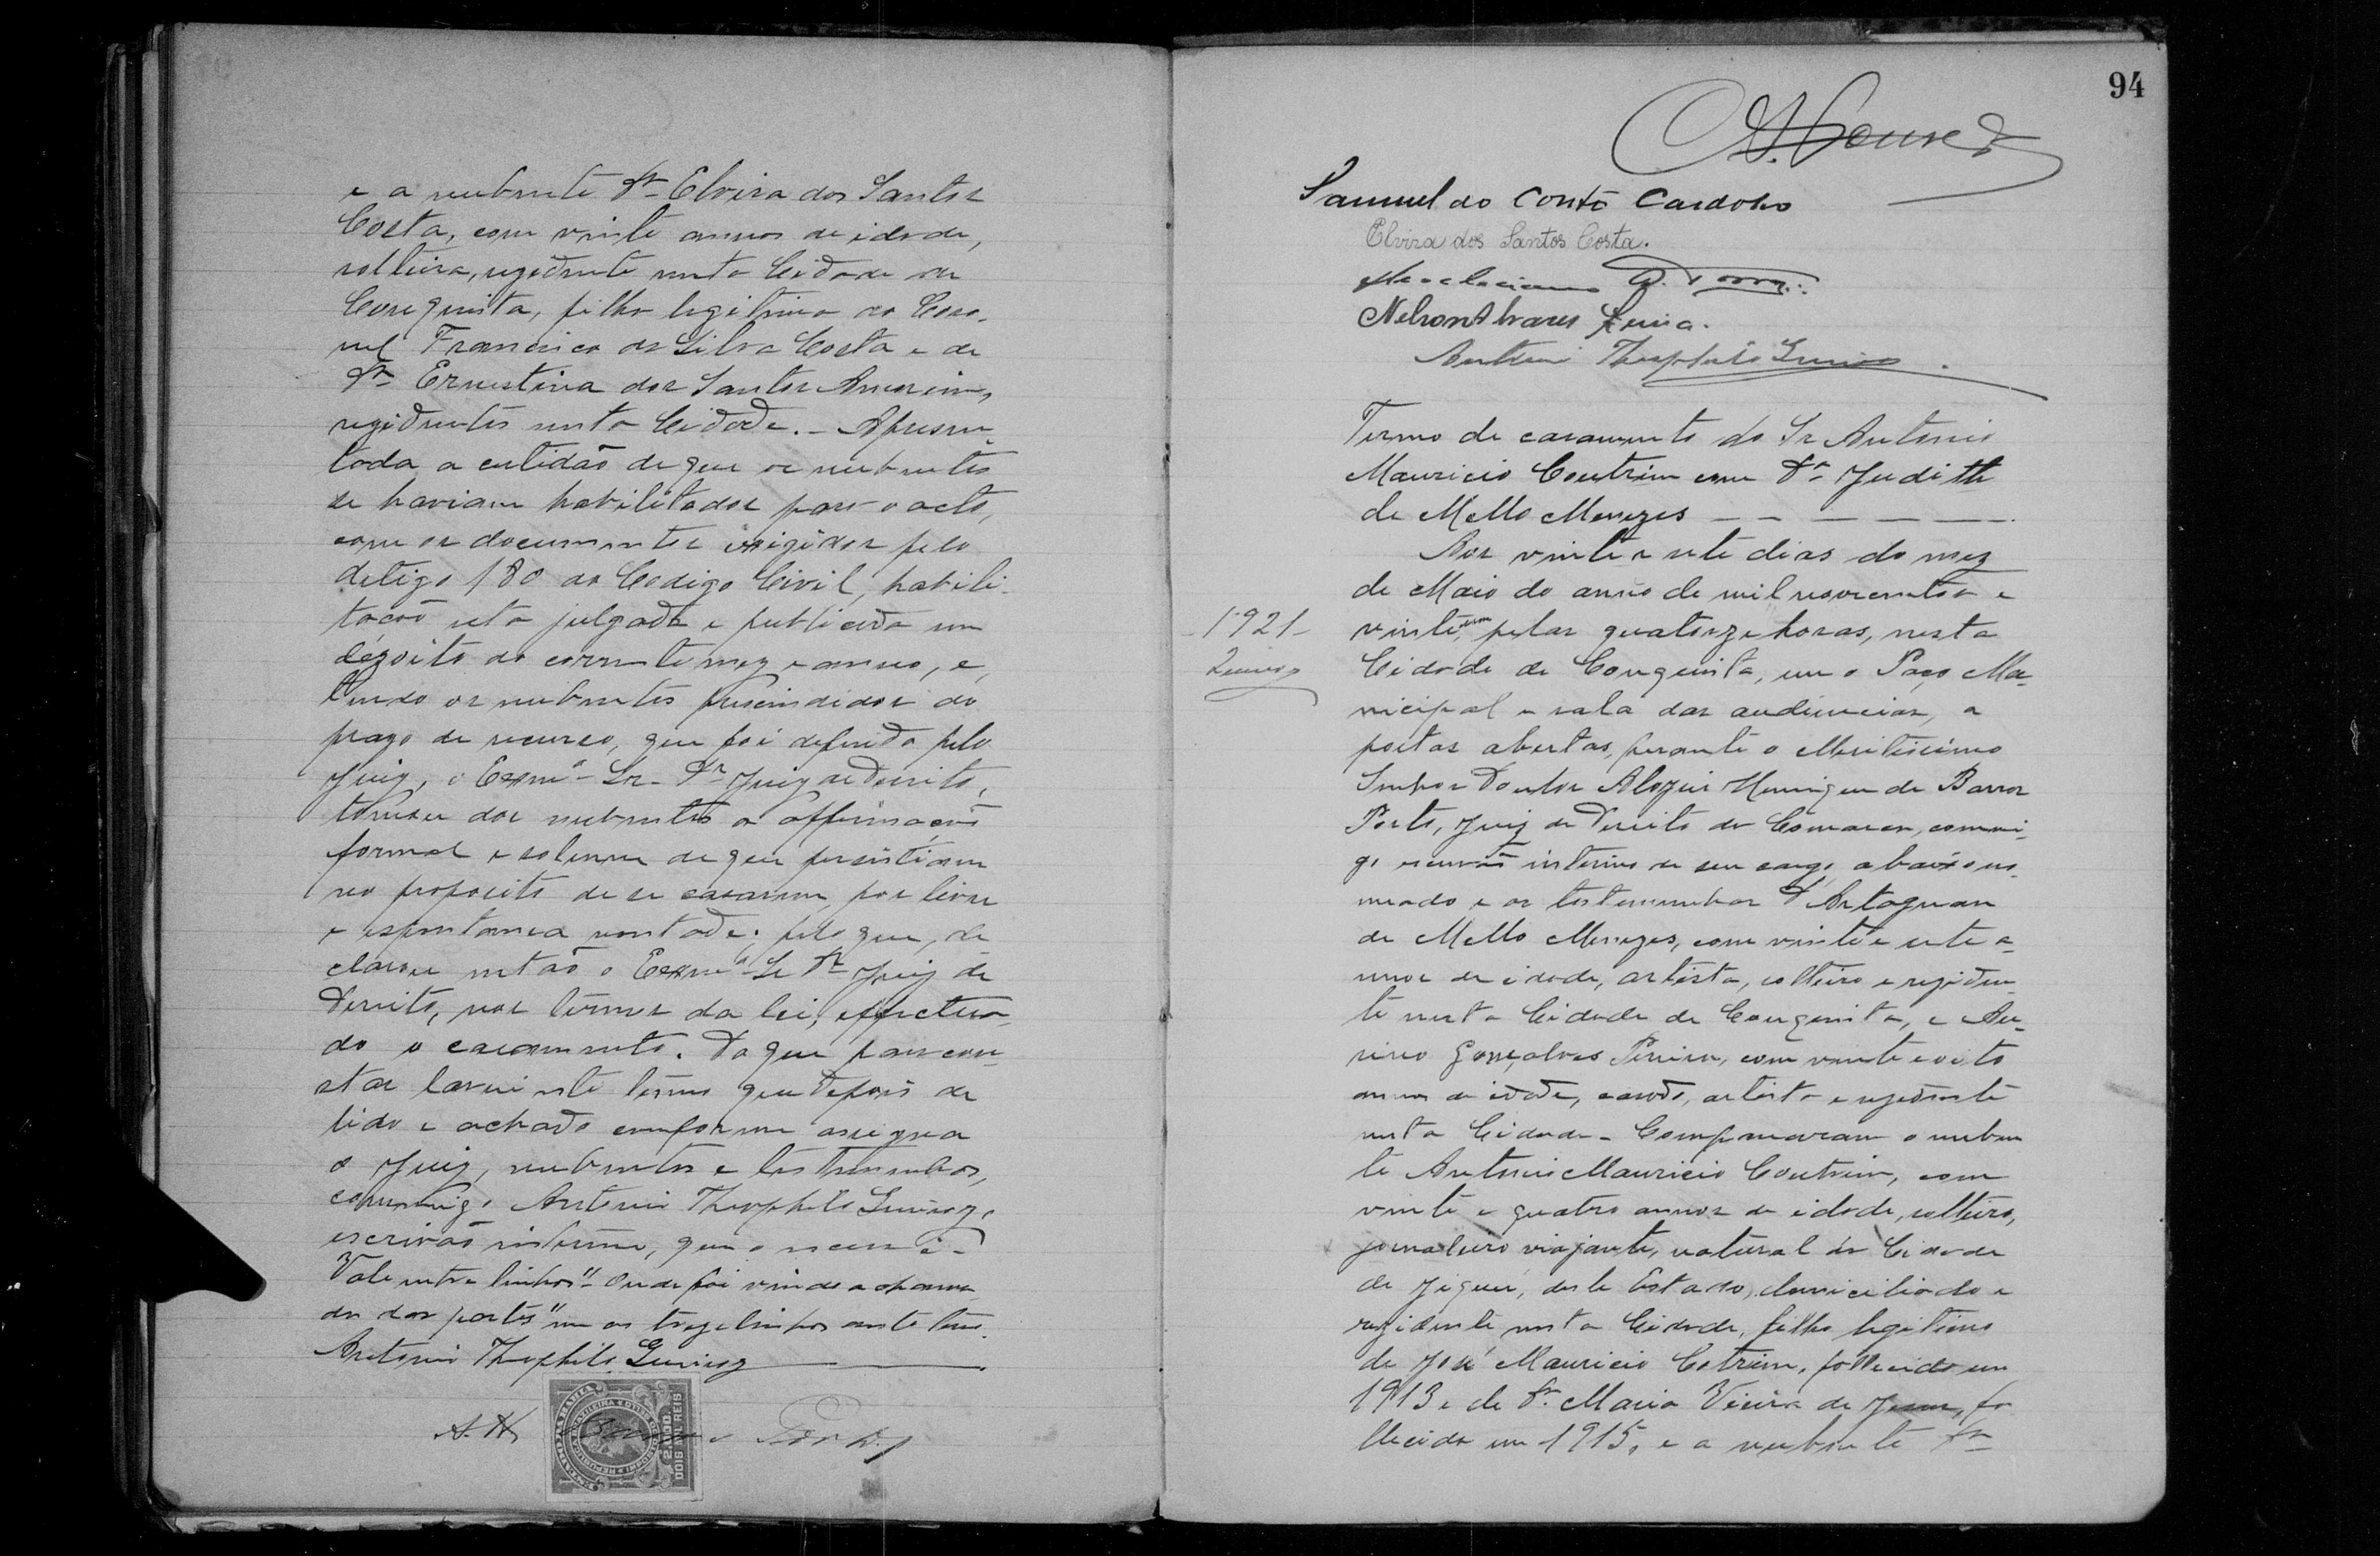 e a nubente Dra Elvira dos Santos
Costa, com vinte annos de idade,
solteira, rezidente nesta Cidade de
Conquista, filha legitima do Coro-
nel Francisco da Silva Costa e de
Dª Ernestina dos Santos Amorim,
rezidentes nesta Cidade. - Apresen-
tada a certidão de que os nubentes
se haviam habilitados para o acto,
com os documentos exigidos pelo
Artigo 180 do Codigo Civil, habili-
tação esta julgada e publicada em
dezoito do corrente mez e anno, e,
tendo os nubentes prescindidos do
prazo de recurso, que foi deferido pelo
Juiz, o Exmº Sr. Dr Juiz de Direito,
tomou dos nubentes a affirmação
formal e solemne de que persistiam
no proposito de se casarem, por livre
e espontanea vontade; pelo que, de
clarou então o Exmº Sr Dr Juiz de
Direito, nos termos da lei, effectua-
do o casamento. Do que para con-
star lavrei este termo que depois de
lido e achado conforme assigna
o Juiz, nubentes e testemunhas,
commigo Antonio Theophilo
escrivão interino, que o escrevi -
Vale entre linhas "onde foi vindo a chama-
da das partes" em as treze linhas deste termo.
Antonio Theophilo
A. H. Barros Porto
2.000.
DOIS MIL REIS
94
Samuel do Couto Cardoso
Elvira dos Santos Costa.
Nelson Alvares
Antonio Theophilo
Termo de casamento do Sr Antonio
Mauricio Coutrim com Dª Judith
de Mello Menezes - - - - -
Aos vinte e sete dias do mez
de Maio do anno de mil novecentos e
-1921-
vinte e um, pelas quatorze horas, nesta
Cidade de Conquista, em o Paço Mu-
nicipal e sala das audiencias, a
portas abertas, perante o Meritissimo
Senhor Doutor Alozio Henrique de Barros
Porto, Juiz de Direito da Comarca, commi-
go escrivão interino de seu cargo, abaixo no-
meado e as testemunhas D'Artagnan
de Mello Menezes, com vinte e sete a-
nnos de idade, artista, solteiro e reziden-
te nesta Cidade de Conquista, e
Gonçalves Pereira, com vinte e oito
annos de idade, casado, artista e rezidente
nesta Cidade - Compareceram o nuben
te Antonio Mauricio Coutrim, com
vinte e quatro annos de idade, solteiro,
jornaleiro viajante, natural da Cidade
de Jiquié, deste Estado, domiciliado e
rezidente nesta Cidade, filho legitimo
de José Mauricio Cotrim, fallecido em
1913 e de Dª Maria Vieira de Jesus, fa
llecida em 1915, e a nubente Dª